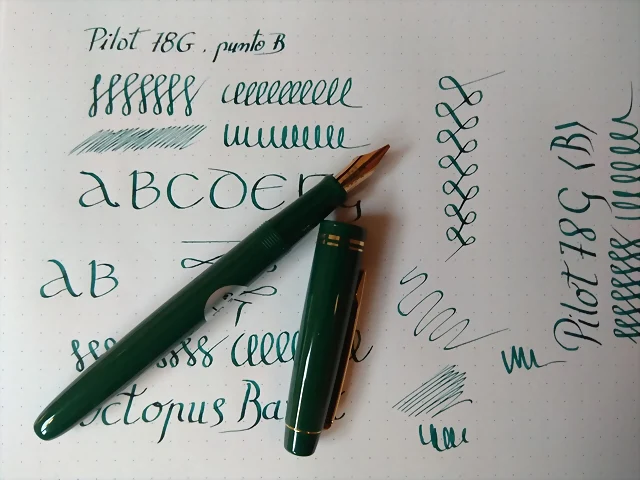 Pilot 78G. punto B
ABCDEF
AB
Octopus
Pilot 78G (B)